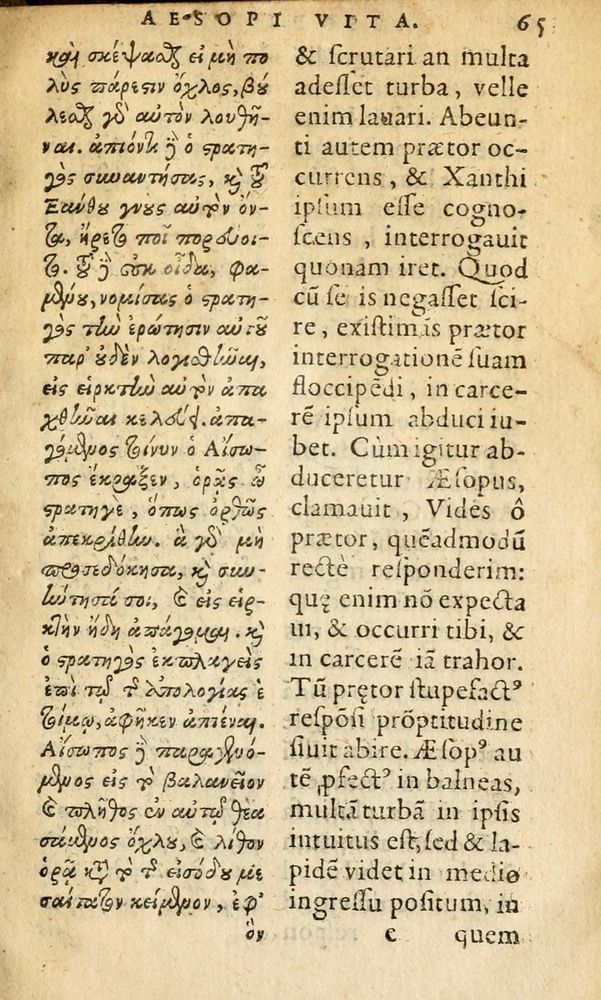 AESOPI VITA. 65
καὶ σκέψαϑζ εἰ μὴ πο
λὺς πάρεςιν ὄχλος, βό
λεϑζ γδ αὐτὸν λουθῆ-
ναι. ἀπιόντι ἢ ὁ ςρατη-
γὸς σιωαντήσας, κὴ τ
Ξάνθου γνοὺς αὐτὸν ὄν-
τα, ἤρετο ποῖ πορεύοι-
το. τ ἢ οὐκ οἶδα, φα-
μένου, νομίσας ὁ ςρατη-
γὸς τὼ ἐρώτησιν αὐτοῦ
παρ' οὐδὲν λογισθῶαι,
εἰς εἱρκτὼ αὐτὸν ἀπα
χθῶαι κελεύει. ἀπα-
γόμενος τοίνυν ὁ Αἴσω-
πος ἔκραξεν, ὁρᾷς ὦ
ςρατηγὲ, ὅπως ὀρθῶς
ἀπεκρίθω. ἃ γδ μὴ
προσεδόκησα, κὴ σιω-
ήντησά σοι, καὶ εἰς εἱρ-
κτὴν ἤδη ἀπάγομαι. κὴ
ὁ ςρατηγὸς ἐκπλαγεὶς
ἐπὶ τῷ τ ἀπολογίας ἑ
τοίμῳ, ἀφῆκεν ἀπιέναι.
Αἴσωπος ἢ παραγενό-
μενος εἰς τὸ βαλανεῖον
καὶ πλῆθος ἐν αὐτῷ θεα
σάμενος ὄχλου, καὶ λίθον
ὁρᾷ κατὰ τὸ τ εἰσόδου με
σαίτατον κείμενον, ἐφ'
ὃν
& ſcrutari an multa
adeſſet turba, velle
enim lauari. Abeun-
ti autem prætor oc-
currens, & Xanthi
ipſum eſſe cogno-
ſcens, interrogauit
quonam iret. Quod
cū ſe is negaſſet ſci-
re, exiſtimãs prætor
interrogationẽ ſuam
floccipẽdi, in carce-
rẽ ipſum abduci iu-
bet. Cùm igitur ab-
duceretur Æſopus,
clamauit, Vides ô
prætor, quẽadmodū
rectè reſponderim:
quę enim nõ expecta
ui, & occurri tibi, &
in carcerẽ iã trahor.
Tū prętor ſtupefactꝰ
reſpõſi prõptitudine
ſiuit abire. Æſopꝰ au
tẽ ꝑfectꝰ in balneas,
multã turbã in ipſis
intuitus eſt, ſed & la-
pidẽ videt in medio
ingreſſu poſitum, in
e quem